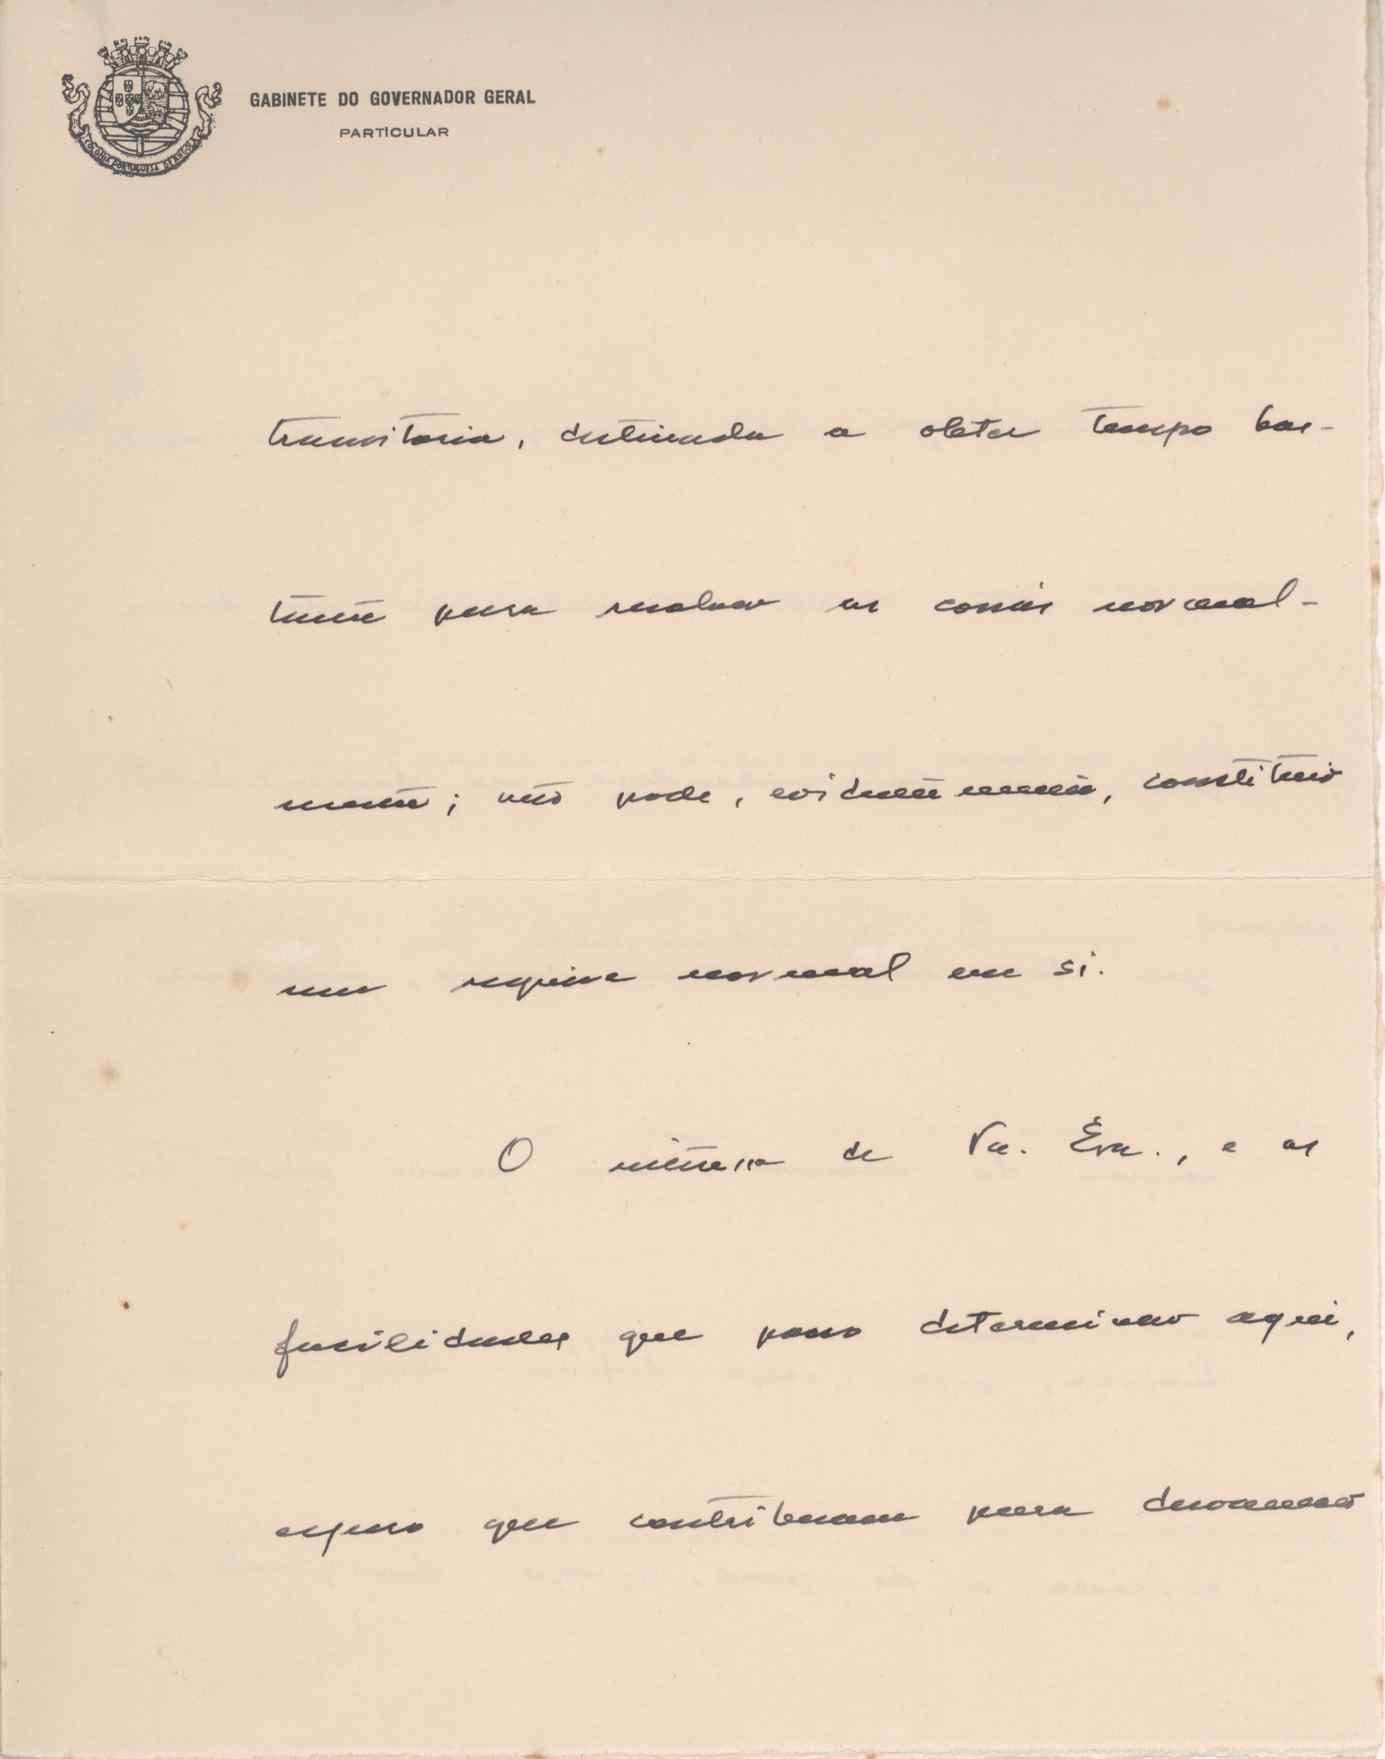 GABINETE DO GOVERNADOR GERAL
PARTICULAR
COLONIA PORTUGUESA DE ANGOLA
transitoria, destinada a obter tempo bas-
tante para resolver as coisas normal-
mente; não pode, evidentemente, constituir
um regime normal em si.
O interesse de Va. Exa., e as
facilidades que posso determinar aqui,
espero que contribuam para